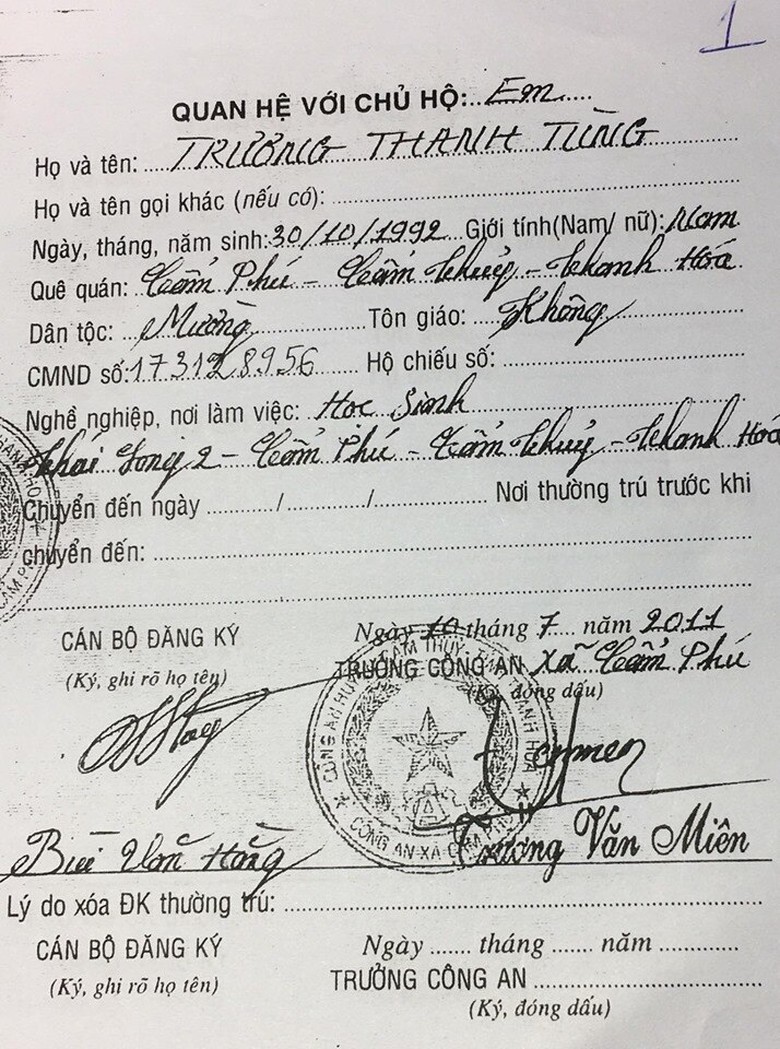 1
QUAN HỆ VỚI CHỦ HỘ: Em
Họ và tên: TRƯƠNG THANH TÙNG
Họ và tên gọi khác (nếu có):
Ngày, tháng, năm sinh: 30/10/1992 Giới tính(Nam/ nữ): Nam
Quê quán: Cẩm Phú - Cẩm Thuỷ - Thanh Hoá
Dân tộc: Mường Tôn giáo: Không
CMND số: 173128956 Hộ chiếu số:
Nghề nghiệp, nơi làm việc: Học Sinh
Thái Long 2 - Cẩm Phú - Cẩm Thuỷ - Thanh Hoá
Chuyển đến ngày ....../....../...... Nơi thường trú trước khi
chuyển đến:
CÁN BỘ ĐĂNG KÝ Ngày 10 tháng 7 năm 2011
(Ký, ghi rõ họ tên) TRƯỞNG CÔNG AN xã Cẩm Phú
(Ký, đóng dấu)
CÔNG AN XÃ CẨM PHÚ
Bùi Văn Hằng Trương Văn Miên
Lý do xóa ĐK thường trú:
CÁN BỘ ĐĂNG KÝ Ngày ....... tháng ....... năm ............
(Ký, ghi rõ họ tên) TRƯỞNG CÔNG AN
(Ký, đóng dấu)